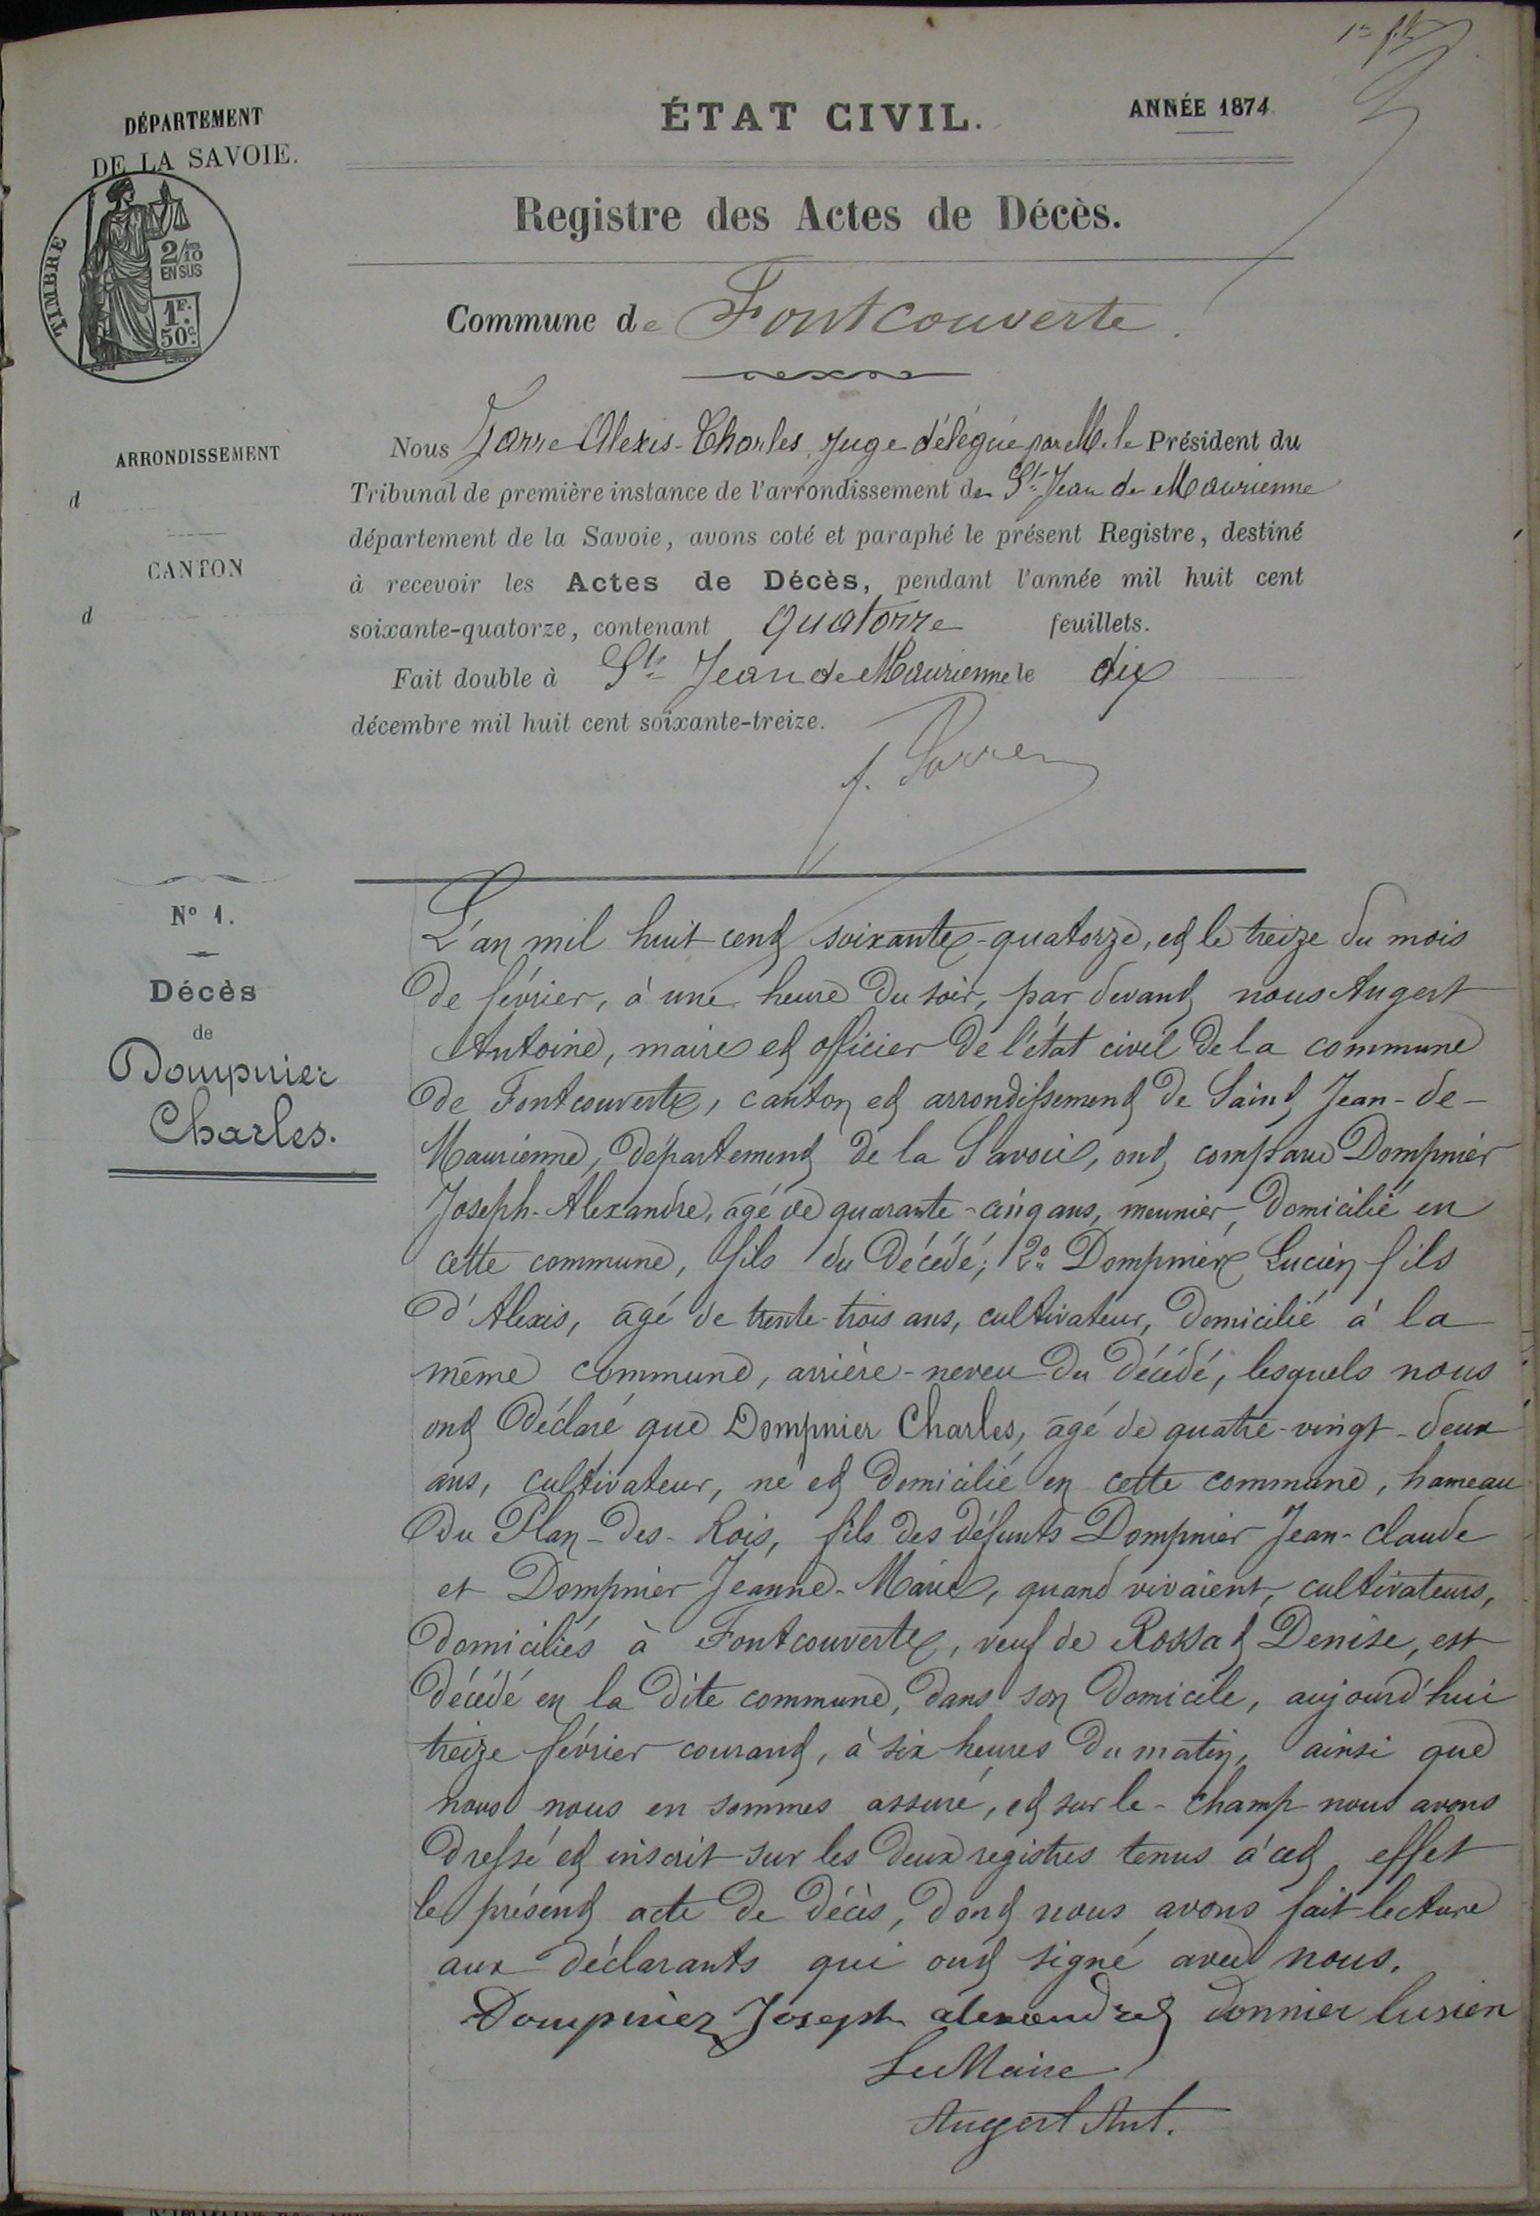 1er f.t
ÉTAT CIVIL.
ANNÉE 1874.
DÉPARTEMENT
DE LA SAVOIE.
TIMBRE
2/10
EN SUS
1F.
50c.
Registre des Actes de Décès.
Commune de Fontcouverte.
ARRONDISSEMENT
d
CANTON
d
Nous Alexis-Charles, Juge délégué par M. le Président du
Tribunal de première instance de l'arrondissement de St-Jean de Maurienne
département de la Savoie, avons coté et paraphé le présent Registre, destiné
à recevoir les Actes de Décès, pendant l'année mil huit cent
soixante-quatorze, contenant quatorze feuillets.
Fait double à St Jean de Maurienne le dix
décembre mil huit cent soixante-treize.
No 1.
Décès
de
Dompnier
Charles.
L'an mil huit cent soixante-quatorze, et le treize du mois
de février, à une heure du soir, par devant nous Augert
Antoine, maire et officier de l'état civil de la commune
de Fontcouverte, canton et arrondissement de Saint Jean-de-
Maurienne, département de la Savoie, ont comparu Dompnier
Joseph-Alexandre, âgé de quarante-cinq ans, meunier, domicilié en
cette commune, fils du décédé; 2o Dompnier Lucien fils
d'Alexis, âgé de trente-trois ans, cultivateur, domicilié à la
même commune, arrière-neveu du décédé, lesquels nous
ont déclaré que Dompnier Charles, âgé de quatre-vingt-deux
ans, cultivateur, né et domicilié en cette commune, hameau
du Plan-des-Rois, fils des défunts Dompnier Jean-Claude
et Dompnier Jeanne-Marie, quand vivaient, cultivateurs,
domiciliés à Fontcouverte, veuf de Rossat Denise, est
décédé en la dite commune, dans son domicile, aujourd'hui
treize février courant, à six heures du matin, ainsi que
nous nous en sommes assuré, et sur-le-champ nous avons
dressé et inscrit sur les deux registres tenus à cet effet
le présent acte de décès, dont nous avons fait lecture
aux déclarants qui ont signé avec nous.
Dompnier Joseph alexandre donnier lusien
Le Maire
Augert Ant.